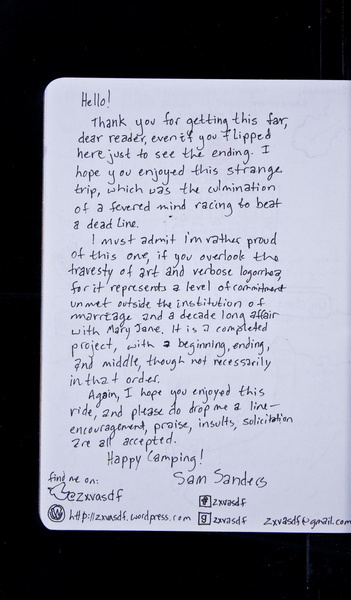 Hello!
Thank you for getting this far,
dear reader, even if you flipped
here just to see the ending. I
hope you enjoyed this strange
trip, which was the culmination
of a fevered mind racing to beat
a dead line.
I must admit i'm rather proud
of this one, if you overlook the
travesty of art and verbose logorrhea,
for it represents a level of commitment
unmet outside the institution of
marriage and a decade long affair
with Mary Jane. It is a completed
project, with a beginning, ending,
and middle, though not necessarily
in that order.
Again, I hope you enjoyed this
ride, and please do drop me a line—
encouragement, praise, insults, solicitation
are all accepted.
Happy Camping!
Sam Sanders
find me on:
@zxvasdf
zxvasdf
http://zxvasdf.wordpress.com
g zxvasdf
zxvasdf@gmail.com